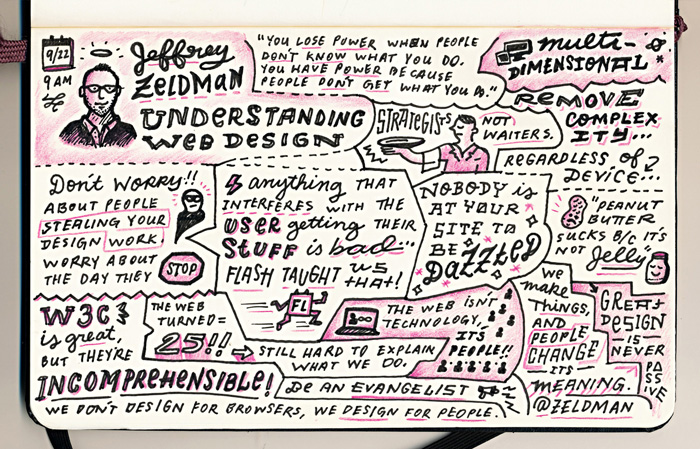 9/22
9 AM
Jeffrey
ZELDMAN
UNDERSTANDING
WEB DESIGN
"YOU LOSE POWER WHEN PEOPLE
DON'T KNOW WHAT YOU DO.
YOU HAVE POWER BECAUSE
PEOPLE DON'T GET WHAT YOU DO."
multi-
DIMENSIONAL
STRATEGISTS
NOT
WAITERS.
REMOVE
COMPLEX
ITY...
REGARDLESS OF
DEVICE...
Don't WORRY!!
ABOUT PEOPLE
STEALING YOUR
DESIGN WORK.
WORRY ABOUT
THE DAY THEY
STOP
anything THAT
INTERFERES WITH THE
USER getting THEIR
STUFF is bad...
FLASH TAUGHT US
THAT!
FL
NOBODY is
AT YOUR
SITE TO
BE
DAZZLED
"PEANUT
BUTTER
SUCKS B/C IT'S
NOT Jelly"
W3C
is great,
BUT THEY'RE
INCOMPREHENSIBLE!
THE WEB
TURNED=
25!!
STILL HARD TO EXPLAIN
WHAT WE DO.
THE WEB ISN'T
TECHNOLOGY,
IT'S
PEOPLE!!
we
make
THINGS,
AND
PEOPLE
CHANGE
ITS
MEANING.
@ZELDMAN
GREAT
DESIGN
IS
NEVER
PA
SS
IVE
BE AN EVANGELIST
WE DON'T DESIGN FOR BROWSERS, WE DESIGN FOR PEOPLE.